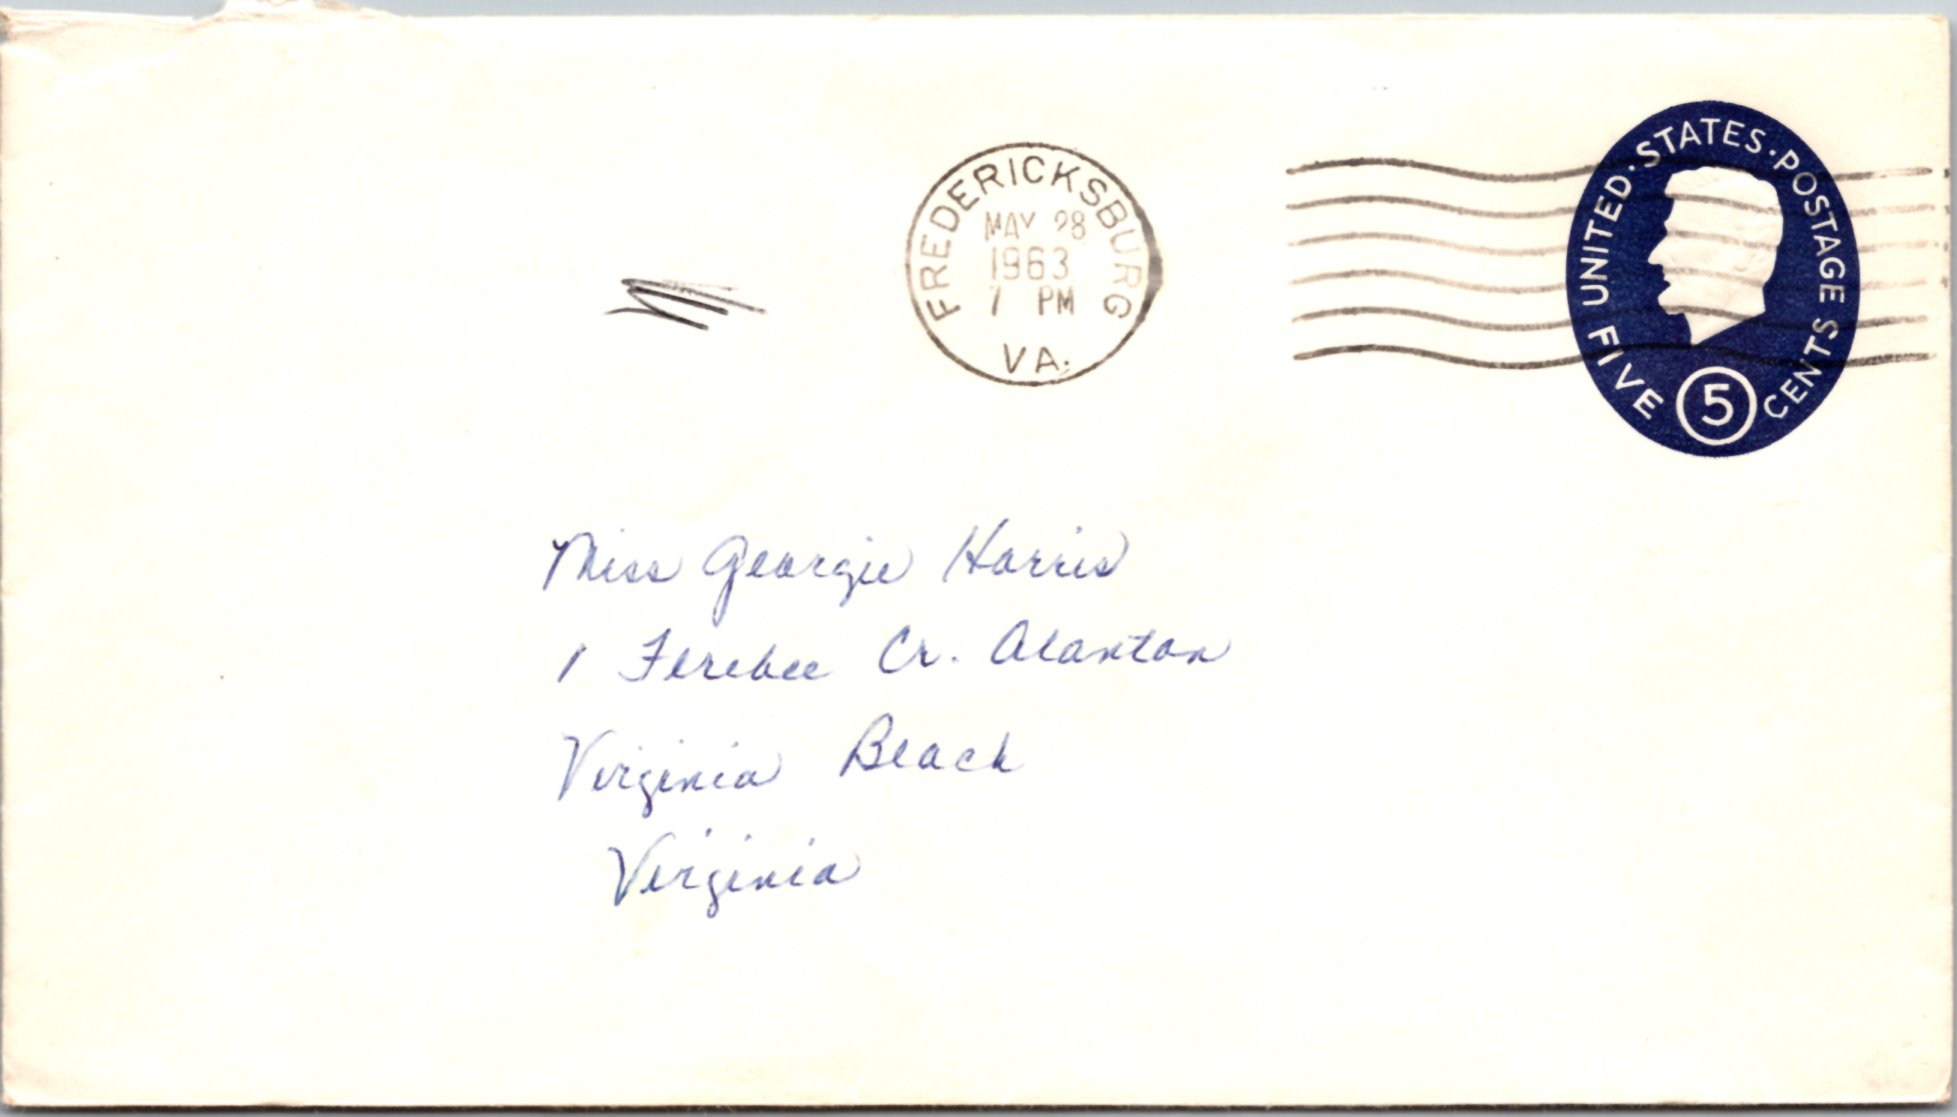 FREDERICKSBURG
MAY 28
1963
7 PM
VA.
UNITED·STATES·POSTAGE
FIVE 5 CENTS
Miss Georgie Harris
1 Ferebee Cr. Alanton
Virginia Beach
Virginia